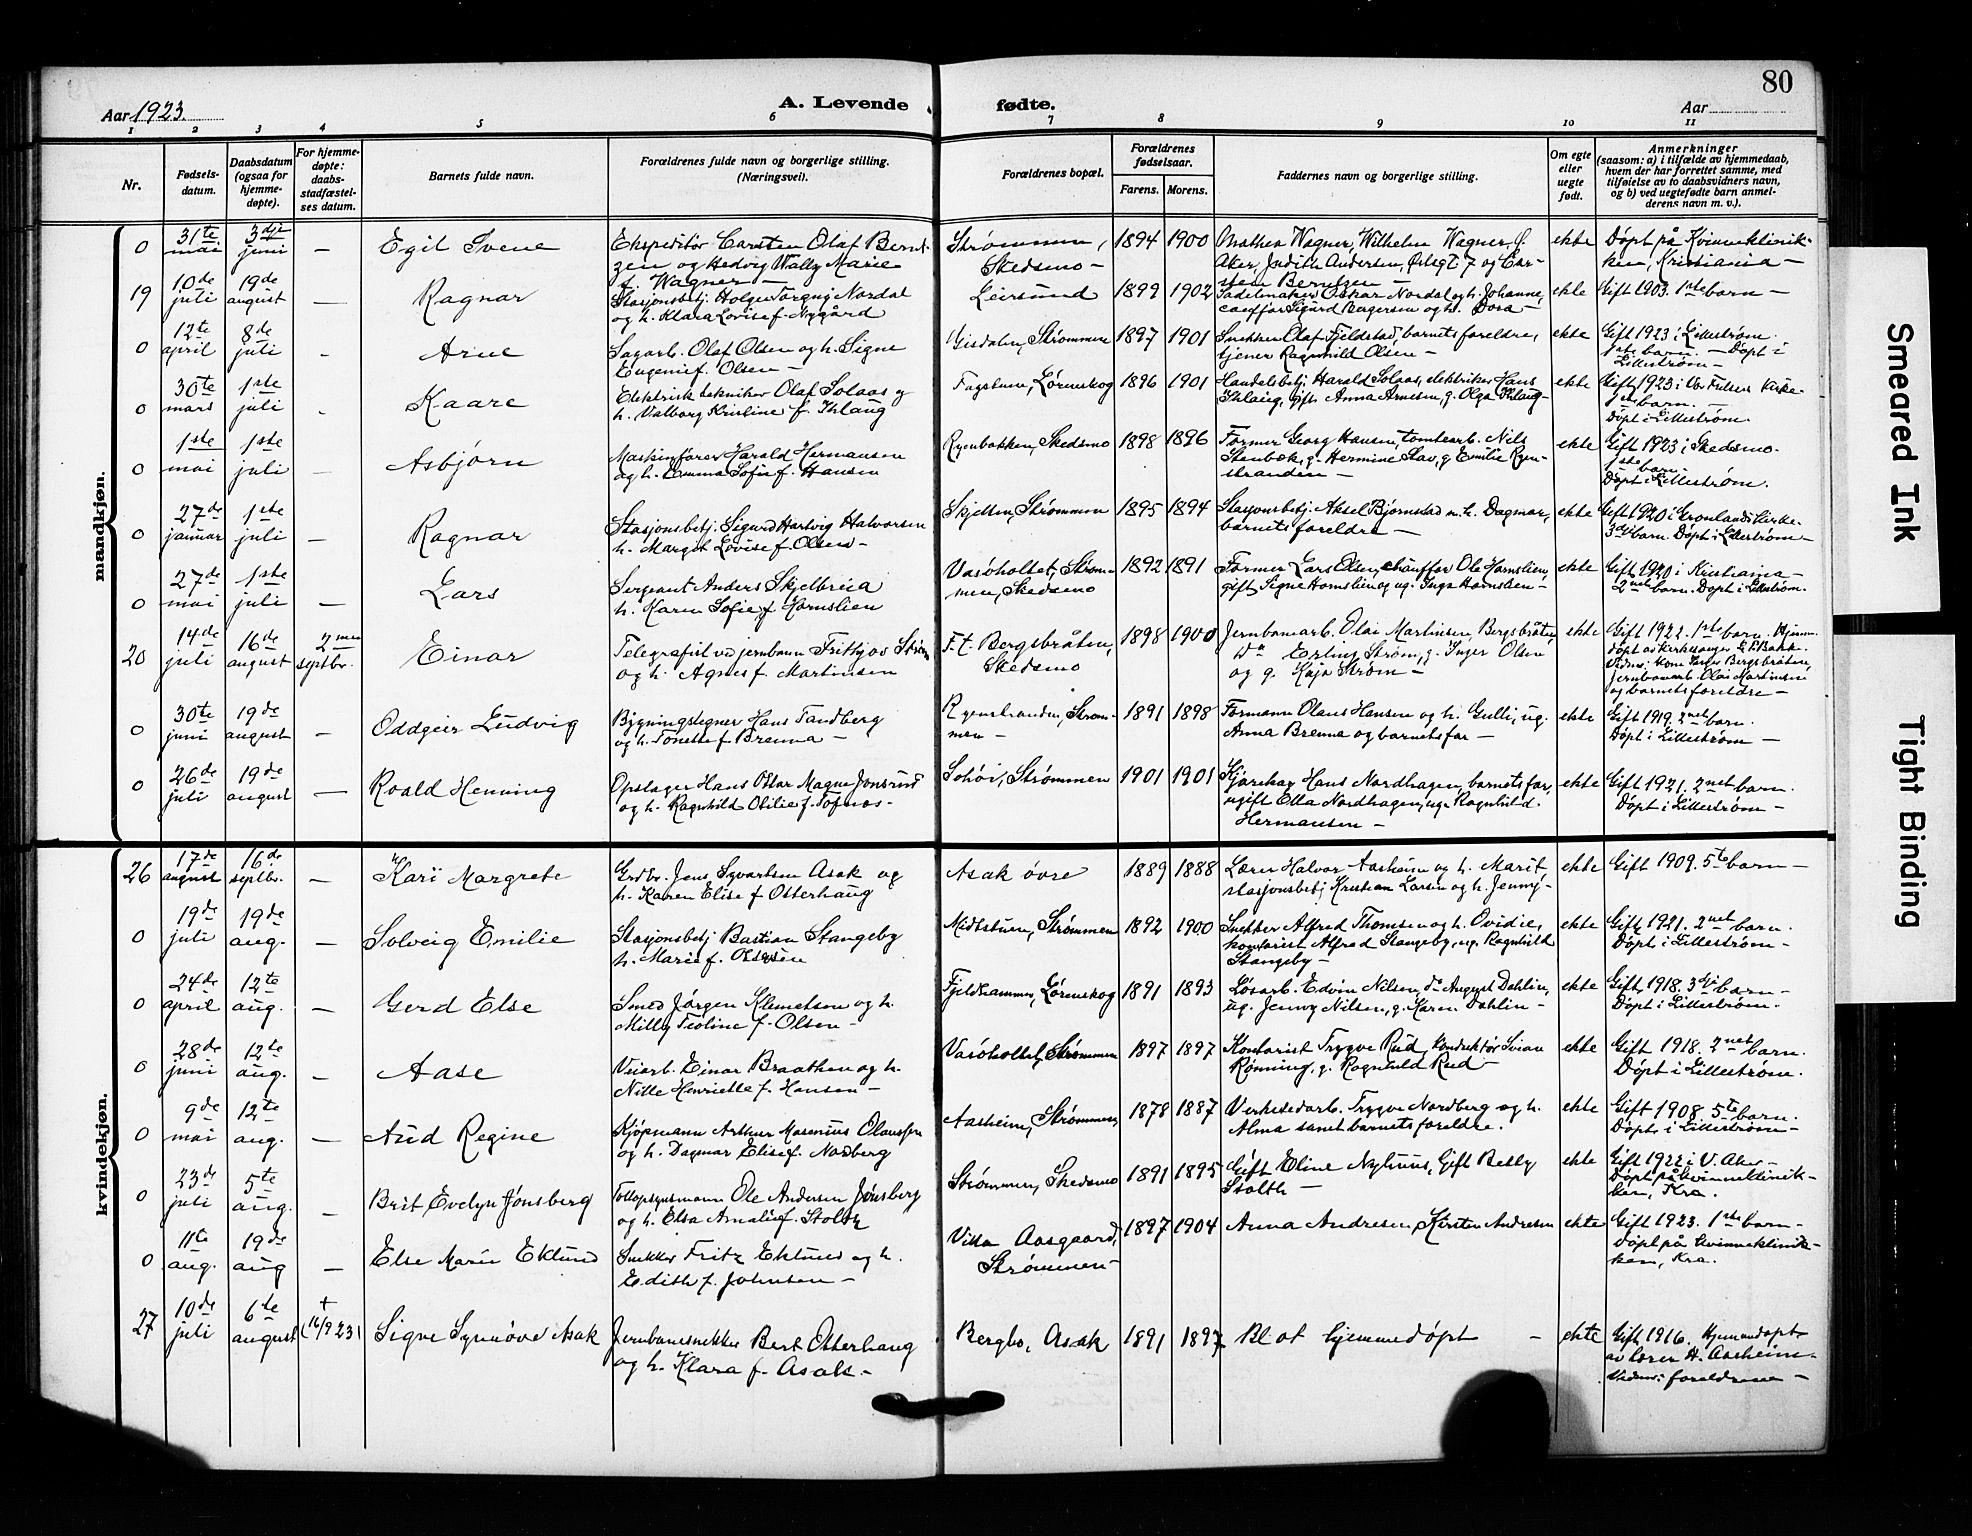 80
Aar 1923.
A. Levende fødte.
Aar
1 2 3 4 5 6 7 8 9 10 11
Nr.
Fødsels-
datum.
Daabsdatum
(ogsaa for
hjemme-
døpte).
For hjemme-
døpte:
daabs-
stadfæstel-
ses datum.
Barnets fulde navn.
Forældrenes fulde navn og borgerlige stilling.
(Næringsvei).
Forældrenes bopæl.
Forældrenes
fødselsaar.
Farens. Morens.
Faddernes navn og borgerlige stilling.
Om egte
eller
uegte
født.
Anmerkninger
(saasom: a) i tilfælde av hjemmedaab,
hvem der har forrettet samme, med
tilføielse av to daabsvidners navn,
og b) ved uegtefødte barn anmel-
derens navn m. v.).
mandkjøn.
0 31te mai 3dje juni — Egil Svene
Ekspeditør Carsten Olaf Bernt-
zen og Hedvig Wally Marie
f. Wagner —
Strømmen,
Skedsmo —
1894 1900
Mathea Wagner, Wilhelm Wagner,
Aker, Judith Andersen, 7 og Car-
sten Berntzen —
ekte
Døpt på Kvinneklinik-
ken, Kristiania —
19 10de juli 19de august — Ragnar
Stasjonsbetj. Holger Torguj Nordal
og h. Klara Lovise f. Nygård
Leirsund
1899 1902
Sadelmaker Oskar Nordal og h. Johanne,
Sigurd Bergersen og h. Dora —
ekte
Gift 1903. 1ste barn —
0 12te april 8de juli - Arne
Sagarb. Olaf Olsen og h. Signe
Eugenie f. Olsen —
Gisdalen, Strømmen
1897 1901
Snekker Olaf Fjeldstad, barnets foreldre,
tjener Ragnhild Olsen —
ekte
Gift 1923 i Lillestrøm.
1ste barn. — Døpt i
Lillestrøm —
0 30te mars 1ste juli - Kaare
Elektrisk tekniker Olaf Solaas og
h. Valborg Kristine f. Ihlaug
Fagstun, Lørenskog
1896 1901
Handelsbetj. Harald Solaas, elektriker Hans
Ihlaug, gift Anna Arnesen, g. Olga Ihlaug —
ekte
Gift 1923 i Vor Frelsers Kirke.
1ste barn. —
Døpt i Lillestrøm.
0 1ste mai 1ste juli - Asbjørn
Maskinfører Harald Hermansen
og h. Emma Sofie f. Hansen
Ryenbakken, Skedsmo
1898 1896
Former Georg Hansen, tomtearb. Nils
Stenbæk, g. Hermine Slav, g. Emilie Ryen-
stranden —
ekte
Gift 1923 i Skedsmo.
1ste barn.
Døpt i Lillestrøm.
0 27de januar 1ste juli — Ragnar
Stasjonsbetj. Sigurd Hartvig Halvorsen
h. Margit Lovise f. Olsen —
Skjetten, Strømmen
1895 1894
Stasjonsbetj. Aksel Bjørnstad m. h. Dagmar,
barnets foreldre —
ekte
Gift 1920 i Grønlands Kirke.
3dje barn. Døpt i Lillestrøm —
0 27de mai 1ste juli — Lars
Sergeant Anders Skjelbreia
h. Karen Sofie f. Hornslien
Vasöholtet, Strøm-
men, Skedsmo
1892 1891
Former Lars Olsen, chauffør Ole Hornslien,
gift Signe Hornslien og ug. Inga Hornslien —
ekte
Gift 1920 i Kristiania —
2net barn. Døpt i Lillestrøm.
20 14de juli 16de august 2nen septbr. Einar
Telegrafist ved jernbanen Frittjov Strøm
og h. Agnes f. Martinsen
F. t. Bergsbråten,
Skedsmo
1898 1900
Jernbanearb. Olai Martinsen, Bergsbråten,
do Erling Strøm, g. Inger Olsen
og g. Kaja Strøm —
ekte
Gift 1922. 1ste barn. Hjem-
døpt av kirkesanger Bakke.
Vidner: Hans Bergsbråten,
jernbanearb. Olai Martinsen
og barnets foreldre —
0 30te juni 19de august — Oddgeir Ludvig
Bygningstegner Hans Tandberg
og h. Tonette f. Brenna —
Ryenstranden, Strøm-
men —
1891 1898
Formann Olaus Hansen og h. Gulli, ug.
Anna Brenna og barnets far —
ekte
Gift 1919. 2net barn.
Døpt i Lillestrøm —
0 26de juli 19de august — Roald Henning
Opsager Hans Oskar Magne Jonsrud
og h. Ragnhild Otilie f. Tofnæs —
Solhöi, Strømmen
1901 1901
Hans Nordhagen, barnets far,
ugift Ella Nordhagen, ug. Ragnhild
Hermansen —
ekte
Gift 1921. 2net barn.
Døpt i Lillestrøm —
kvindekjøn.
26 17de august 16de septbr. — Kari Margrete
Grdbr. Jens Syvertsen Asak og
h. Karen Elise f. Osterhaug
Asak övre
1889 1888
Lærer Halvor Aasheim og h. Marit,
stasjonsbetj. Kristian Larsen og h. Jenny —
ekte
Gift 1909. 5te barn —
0 19de juli 19de aug. — Solveig Emilie
Stasjonsbetj Bastian Stangeby
h. Marie f. Olsen
Midtstuen, Strømmen
1892 1900
Snekker Alfred Thomsen og h. Ovidie,
kontorist Alfred Stangeby, ug. Ragnhild
Stangeby —
ekte
Gift 1921. 2net barn.
Døpt i Lillestrøm —
0 24de april 12te aug. — Gerd Else
Smed Jørgen Klemetsen og h.
Milly Teoline f. Olsen —
Fjeldhammer, Lørenskog
1891 1893
Løsarb. Edvin Nilsen, do August Dahlin,
ug. Jenny Nilsen, g. Karen Dahlin —
ekte
Gift 1918. 3dje barn —
Døpt i Lillestrøm.
0 28de juni 12te aug. — Aase
Veiarb. Einar Braathen og h.
Nille Henriette f. Hansen —
Vasöholtet, Strømmen
1897 1897
Kontorist Trygve Rud, konduktør
Rønning, g. Ragnhild Rud —
ekte
Gift 1918. 2net barn.
Døpt i Lillestrøm.
0 9de mai 12te aug. — Aud Regine
Kjøpmann Arthur Marenius Olaussen
og h. Dagmar Elise f. Nordberg
Aasheim, Strømmen
1878 1887
Verkstedarb. Trygve Nordberg og h.
Alma samt barnets foreldre.
ekte
Gift 1908. 5te barn.
Døpt i Lillestrøm —
0 23de juli 5te aug. — Brit Evelyn Jönsberg
Tollopsynsmann Ole Andersen Jönsberg
og h. Elsa Amalie f. Stoltz
Strømmen, Skedsmo
1891 1895
Gift Eline Nyhuus, Gift Betty
Stolth —
ekte
Gift 1922 i V. Aker —
Døpt på Kvinneklinik-
ken, Kra.
0 11te aug. 19de aug — Else Marie Eklund
Snekker Fritz Eklund og h.
Edith f. Johnsen —
Villa Aasgaard,
Strømmen —
1897 1904
Anna Andresen, Kirsten Andresen
ekte
Gift 1923. 1ste barn —
Døpt på Kvinneklinik-
ken, Kra.
27 10de juli 6te august † (16/9 23) Signe Synnöve Asak
Jernbanesnekker Bert Otterhaug
og h. Klara f. Asak —
Bergbo, Asak
1891 1897
Blot hjemmedöpt —
ekte
Gift 1916. Hjemmedöpt
av lærer H. Aasheim.
Vidner: foreldrene —
Smeared Ink
Tight Binding